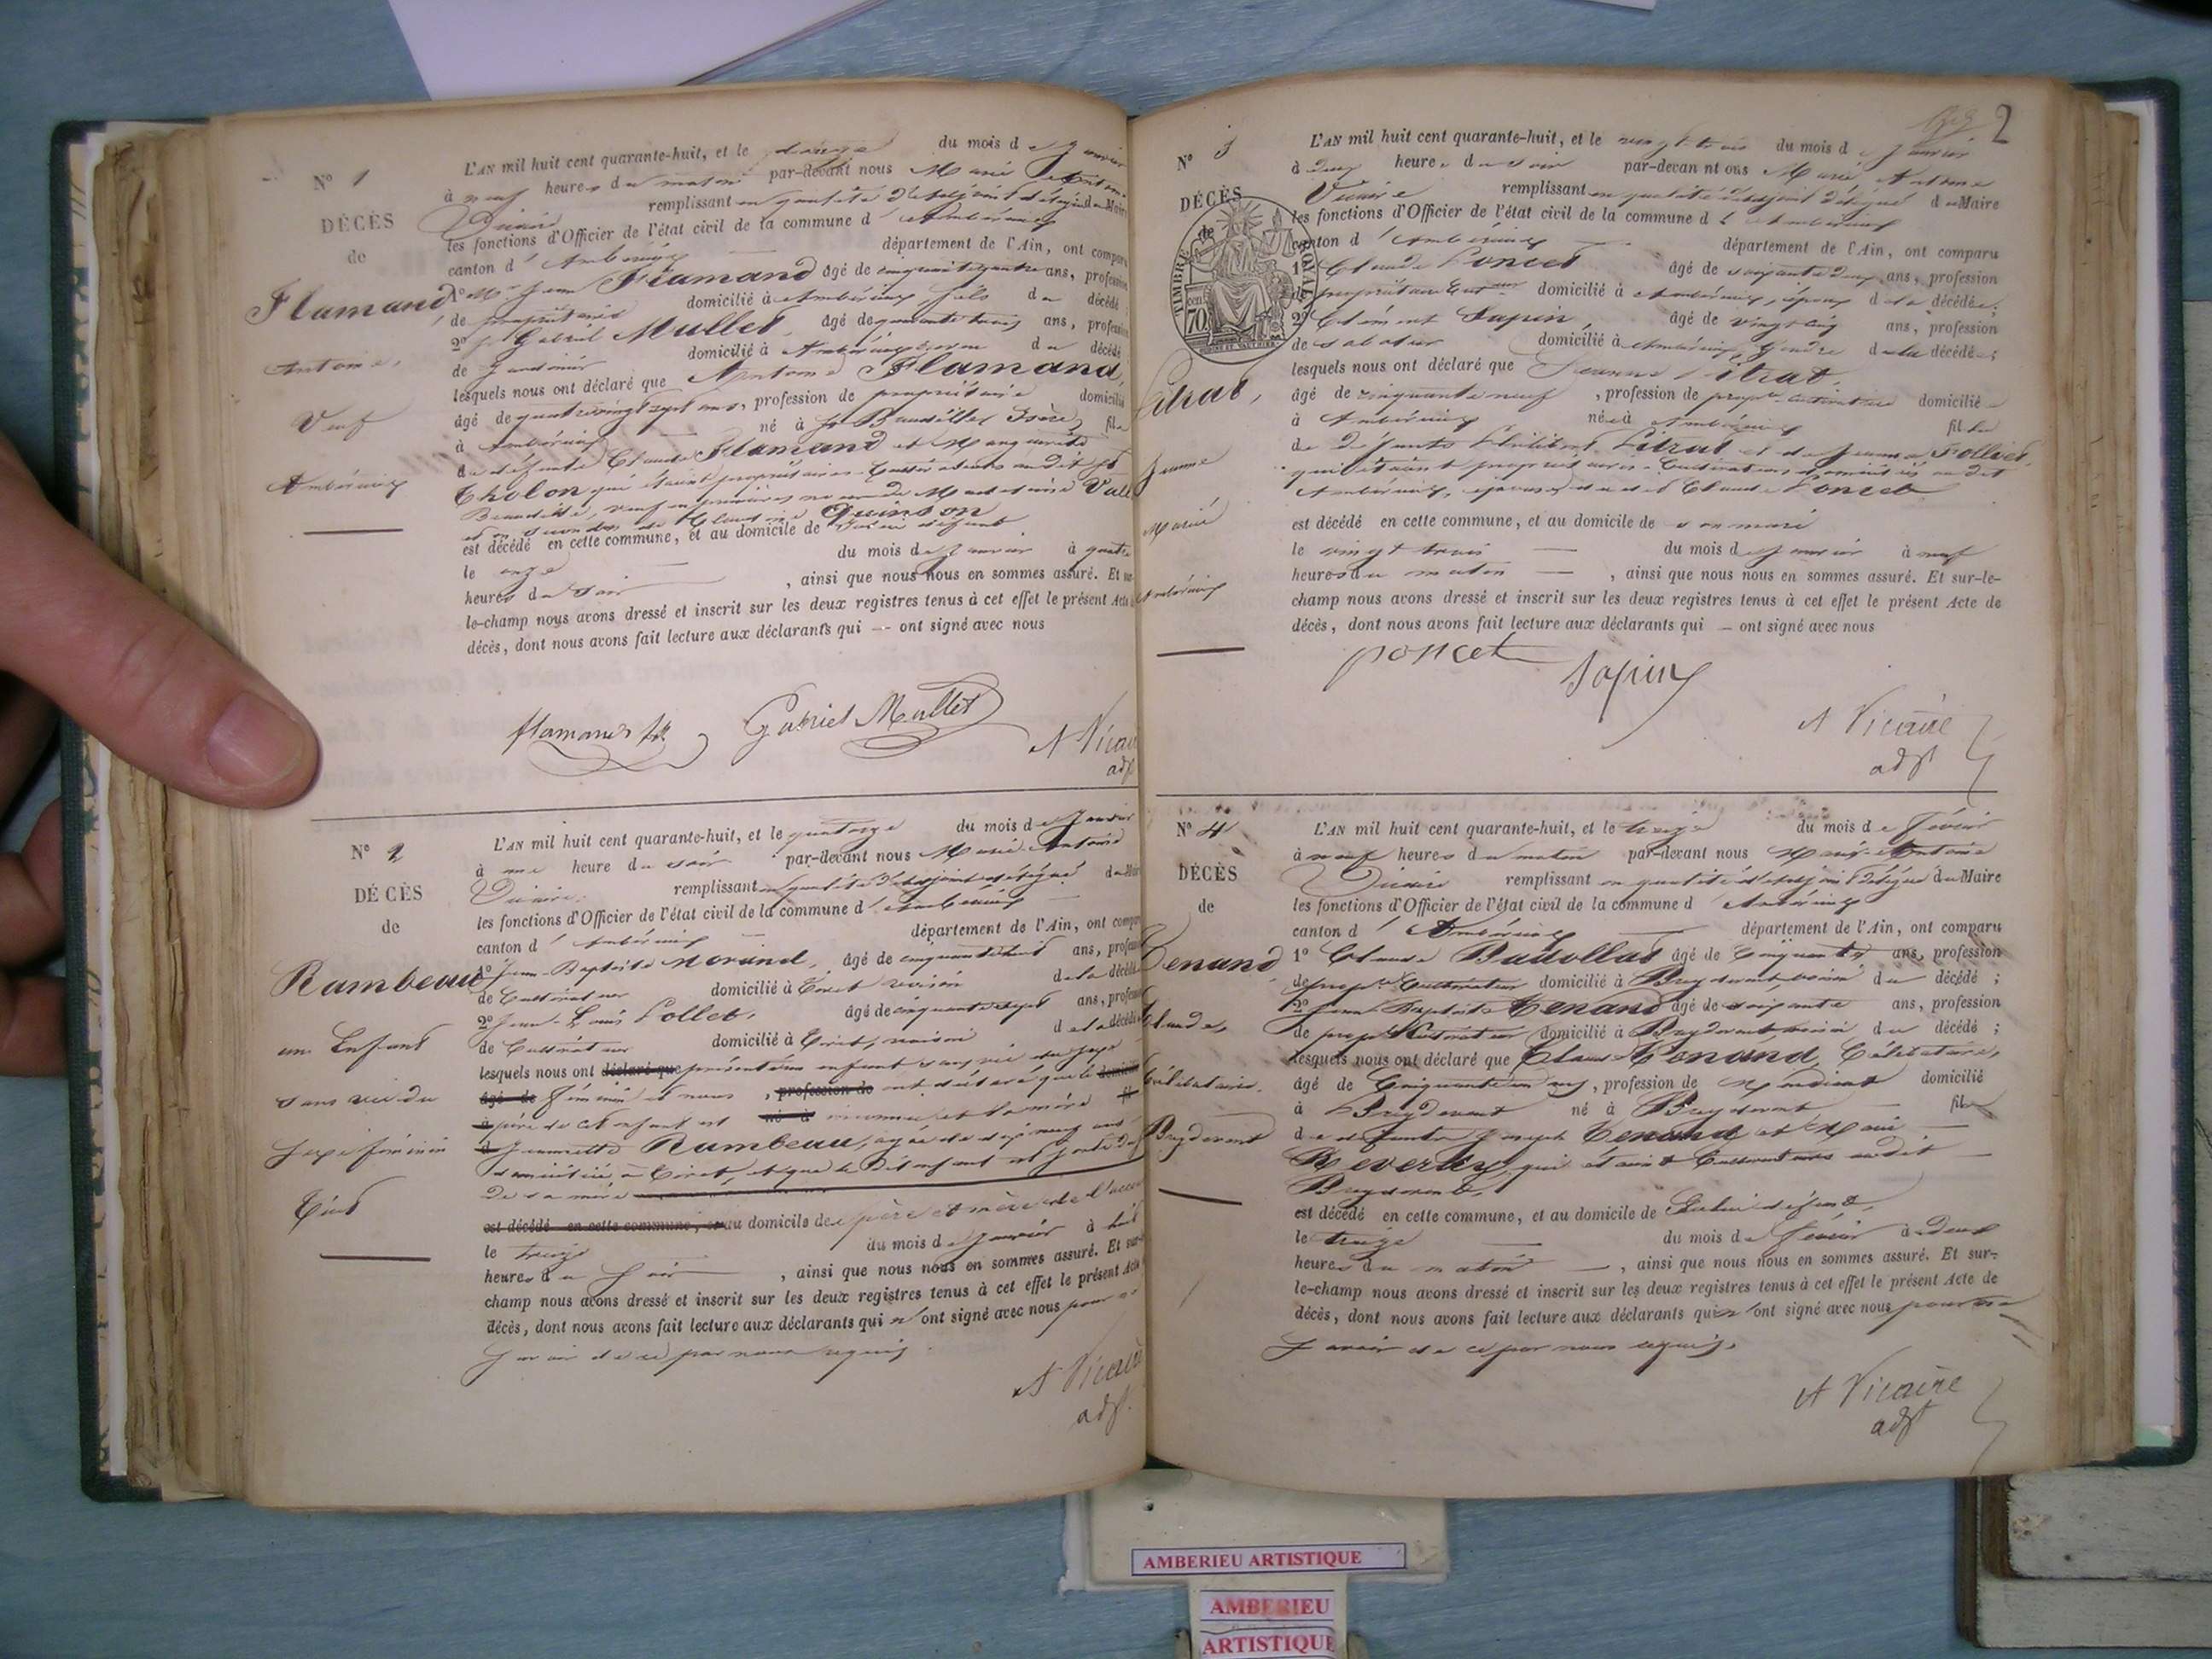 N° 1
DÉCÈS
de
Flamand
Antoine,
Veuf
Ambérieux
L'AN mil huit cent quarante-huit, et le douze du mois de Janvier
à neuf heures du matin par-devant nous Marie Antoine
Vicaire remplissant en qualité d'adjoint délégué du Maire
les fonctions d'Officier de l'état civil de la commune d'Ambérieux
canton d'Ambérieux département de l'Ain, ont comparu
1° Mr Jean Flamand âgé de cinquante quatre ans, profession
de propriétaire domicilié à Ambérieux fils du décédé
2° Gabriel Mullet, âgé de quarante trois ans, profession
de domicilié à Ambérieux du décédé
lesquels nous ont déclaré que Antoine Flamand,
âgé de quatre vingt sept ans, profession de propriétaire domicilié
à Ambérieux né à St Baudille Isère, fils
de défunts Claude Flamand et Marguerite
Tholon qui étaient propriétaires-Cultivateurs audit St
Baudille, veuf en premières noces de
et en secondes de Claudine Quinson
est décédé en cette commune, et au domicile de lui défunt
le onze du mois de Janvier à quatre
heures du soir , ainsi que nous nous en sommes assuré. Et sur-
le-champ nous avons dressé et inscrit sur les deux registres tenus à cet effet le présent Acte
décès, dont nous avons fait lecture aux déclarants qui — ont signé avec nous
flamand fils Gabriel Mullet
A Vicaire
adjt
N° 2
DÉCÈS
de
Rambeau
un Enfant
sans vie du
sexe féminin
Tiret
L'AN mil huit cent quarante-huit, et le quatorze du mois de Janvier
à une heure du soir par-devant nous Marie-Antoine
Vicaire, remplissant en qualité d'adjoint délégué du Maire
les fonctions d'Officier de l'état civil de la commune d'Ambérieux
canton d'Ambérieux département de l'Ain, ont comparu
1° Jean-Baptiste Morand, âgé de cinquante huit ans, profession
de Cultivateur domicilié à Tiret voisin de la décédée
2° Jean-Louis Pollet, âgé de cinquante sept ans, profession
de Cultivateur domicilié à Tiret, voisin de la décédée
lesquels nous ont déclaré que présenté un enfant sans vie du sexe
âgé de féminin et nous , profession de ont déclaré que le domicilié
à père de cet enfant est né à inconnu et la mère fil
d Jeannette Rambeau, âgée de dix neuf ans
domiciliée à Tiret, et que le dit enfant est sorti du
de sa mère
est décédé en cette commune, et au domicile des père et mère de
le treize du mois de Janvier à huit
heures du soir , ainsi que nous nous en sommes assuré. Et sur-le-
champ nous avons dressé et inscrit sur les deux registres tenus à cet effet le présent Acte
décès, dont nous avons fait lecture aux déclarants qui n'ont signé avec nous pour ne
savoir de ce par nous requis.
A Vicaire
adjt.
2
N° 3
DÉCÈS
de
TIMBRE ROYAL
70
Pitrat,
Jeanne
Marié
Ambérieux
L'AN mil huit cent quarante-huit, et le vingt trois du mois de Janvier
à deux heures du soir par-devan nt ous Marie Antoine
Vicaire remplissant en qualité d'adjoint délégué du Maire
les fonctions d'Officier de l'état civil de la commune d'Ambérieux
canton d'Ambérieux département de l'Ain, ont comparu
1° Claude Poncet âgé de soixante deux ans, profession
de propriétaire Culteur domicilié à Ambérieux, époux de la décédée;
2° Clément Sapin, âgé de vingt cinq ans, profession
de sabotier domicilié à Ambérieux, Gendre de la décédée;
lesquels nous ont déclaré que Jeanne Pitrat,
âgé de cinquante neuf , profession de propre-cultivatrice domiciliée
à Ambérieux née à Ambérieux fille
de défunts Philibert Pitrat et de Jeanne Folliet
qui étaient propriétaires-Cultivateurs domiciliés audit
Ambérieux, épouse dudit Claude Poncet
est décédé en cette commune, et au domicile de son mari
le vingt trois du mois de Janvier à neuf
heures du matin , ainsi que nous nous en sommes assuré. Et sur-le-
champ nous avons dressé et inscrit sur les deux registres tenus à cet effet le présent Acte de
décès, dont nous avons fait lecture aux déclarants qui — ont signé avec nous
poncet Sapin
A Vicaire
adjt
N° 4
DÉCÈS
de
Tenand,
Claude,
Célibataire.
Breydevent
L'AN mil huit cent quarante-huit, et le treize du mois de Février
à neuf heures du matin par-devant nous Marie-Antoine
Vicaire remplissant en qualité d'adjoint délégué du Maire
les fonctions d'Officier de l'état civil de la commune d'Ambérieux
canton d'Ambérieux département de l'Ain, ont comparu
1° Claude Badollat âgé de Cinquante ans, profession
de propre Cultivateur domicilié à Breydevent, voisin du décédé ;
2° Jean Baptiste Tenand âgé de soixante ans, profession
de propre Cultivateur domicilié à Breydevent, voisin du décédé ;
lesquels nous ont déclaré que Claude Tenand, Célibataire,
âgé de Cinquante un ans, profession de Mendiant domicilié
à Breydevent né à Breydevent fils
de defunts Joseph Tenand et Marie
Reverdy, qui étaient Cultivateurs audit
Breydevent,
est décédé en cette commune, et au domicile de lui défunt,
le treize du mois de Février à deux
heures du matin , ainsi que nous nous en sommes assuré. Et sur-
le-champ nous avons dressé et inscrit sur les deux registres tenus à cet effet le présent Acte de
décès, dont nous avons fait lecture aux déclarants qui n'ont signé avec nous pour ne
savoir de ce par nous requis.
A Vicaire
adjt
AMBERIEU ARTISTIQUE
AMBERIEU
ARTISTIQUE